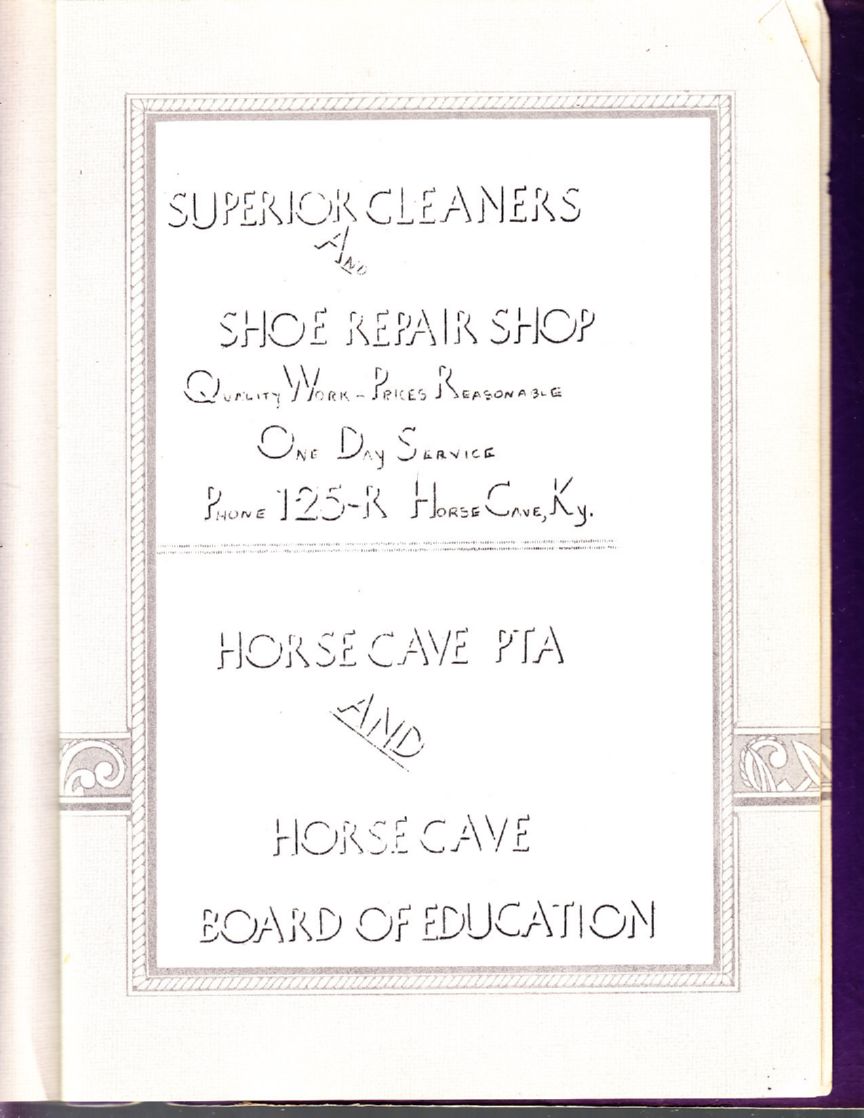 SUPERIOR CLEANERS
AND
SHOE REPAIR SHOP
QUALITY WORK – PRICES REASONABLE
ONE DAy SERVICE
PHONE 125-R HORSE CAVE, Ky.
HORSE CAVE PTA
AND
HORSE CAVE
BOARD OF EDUCATION